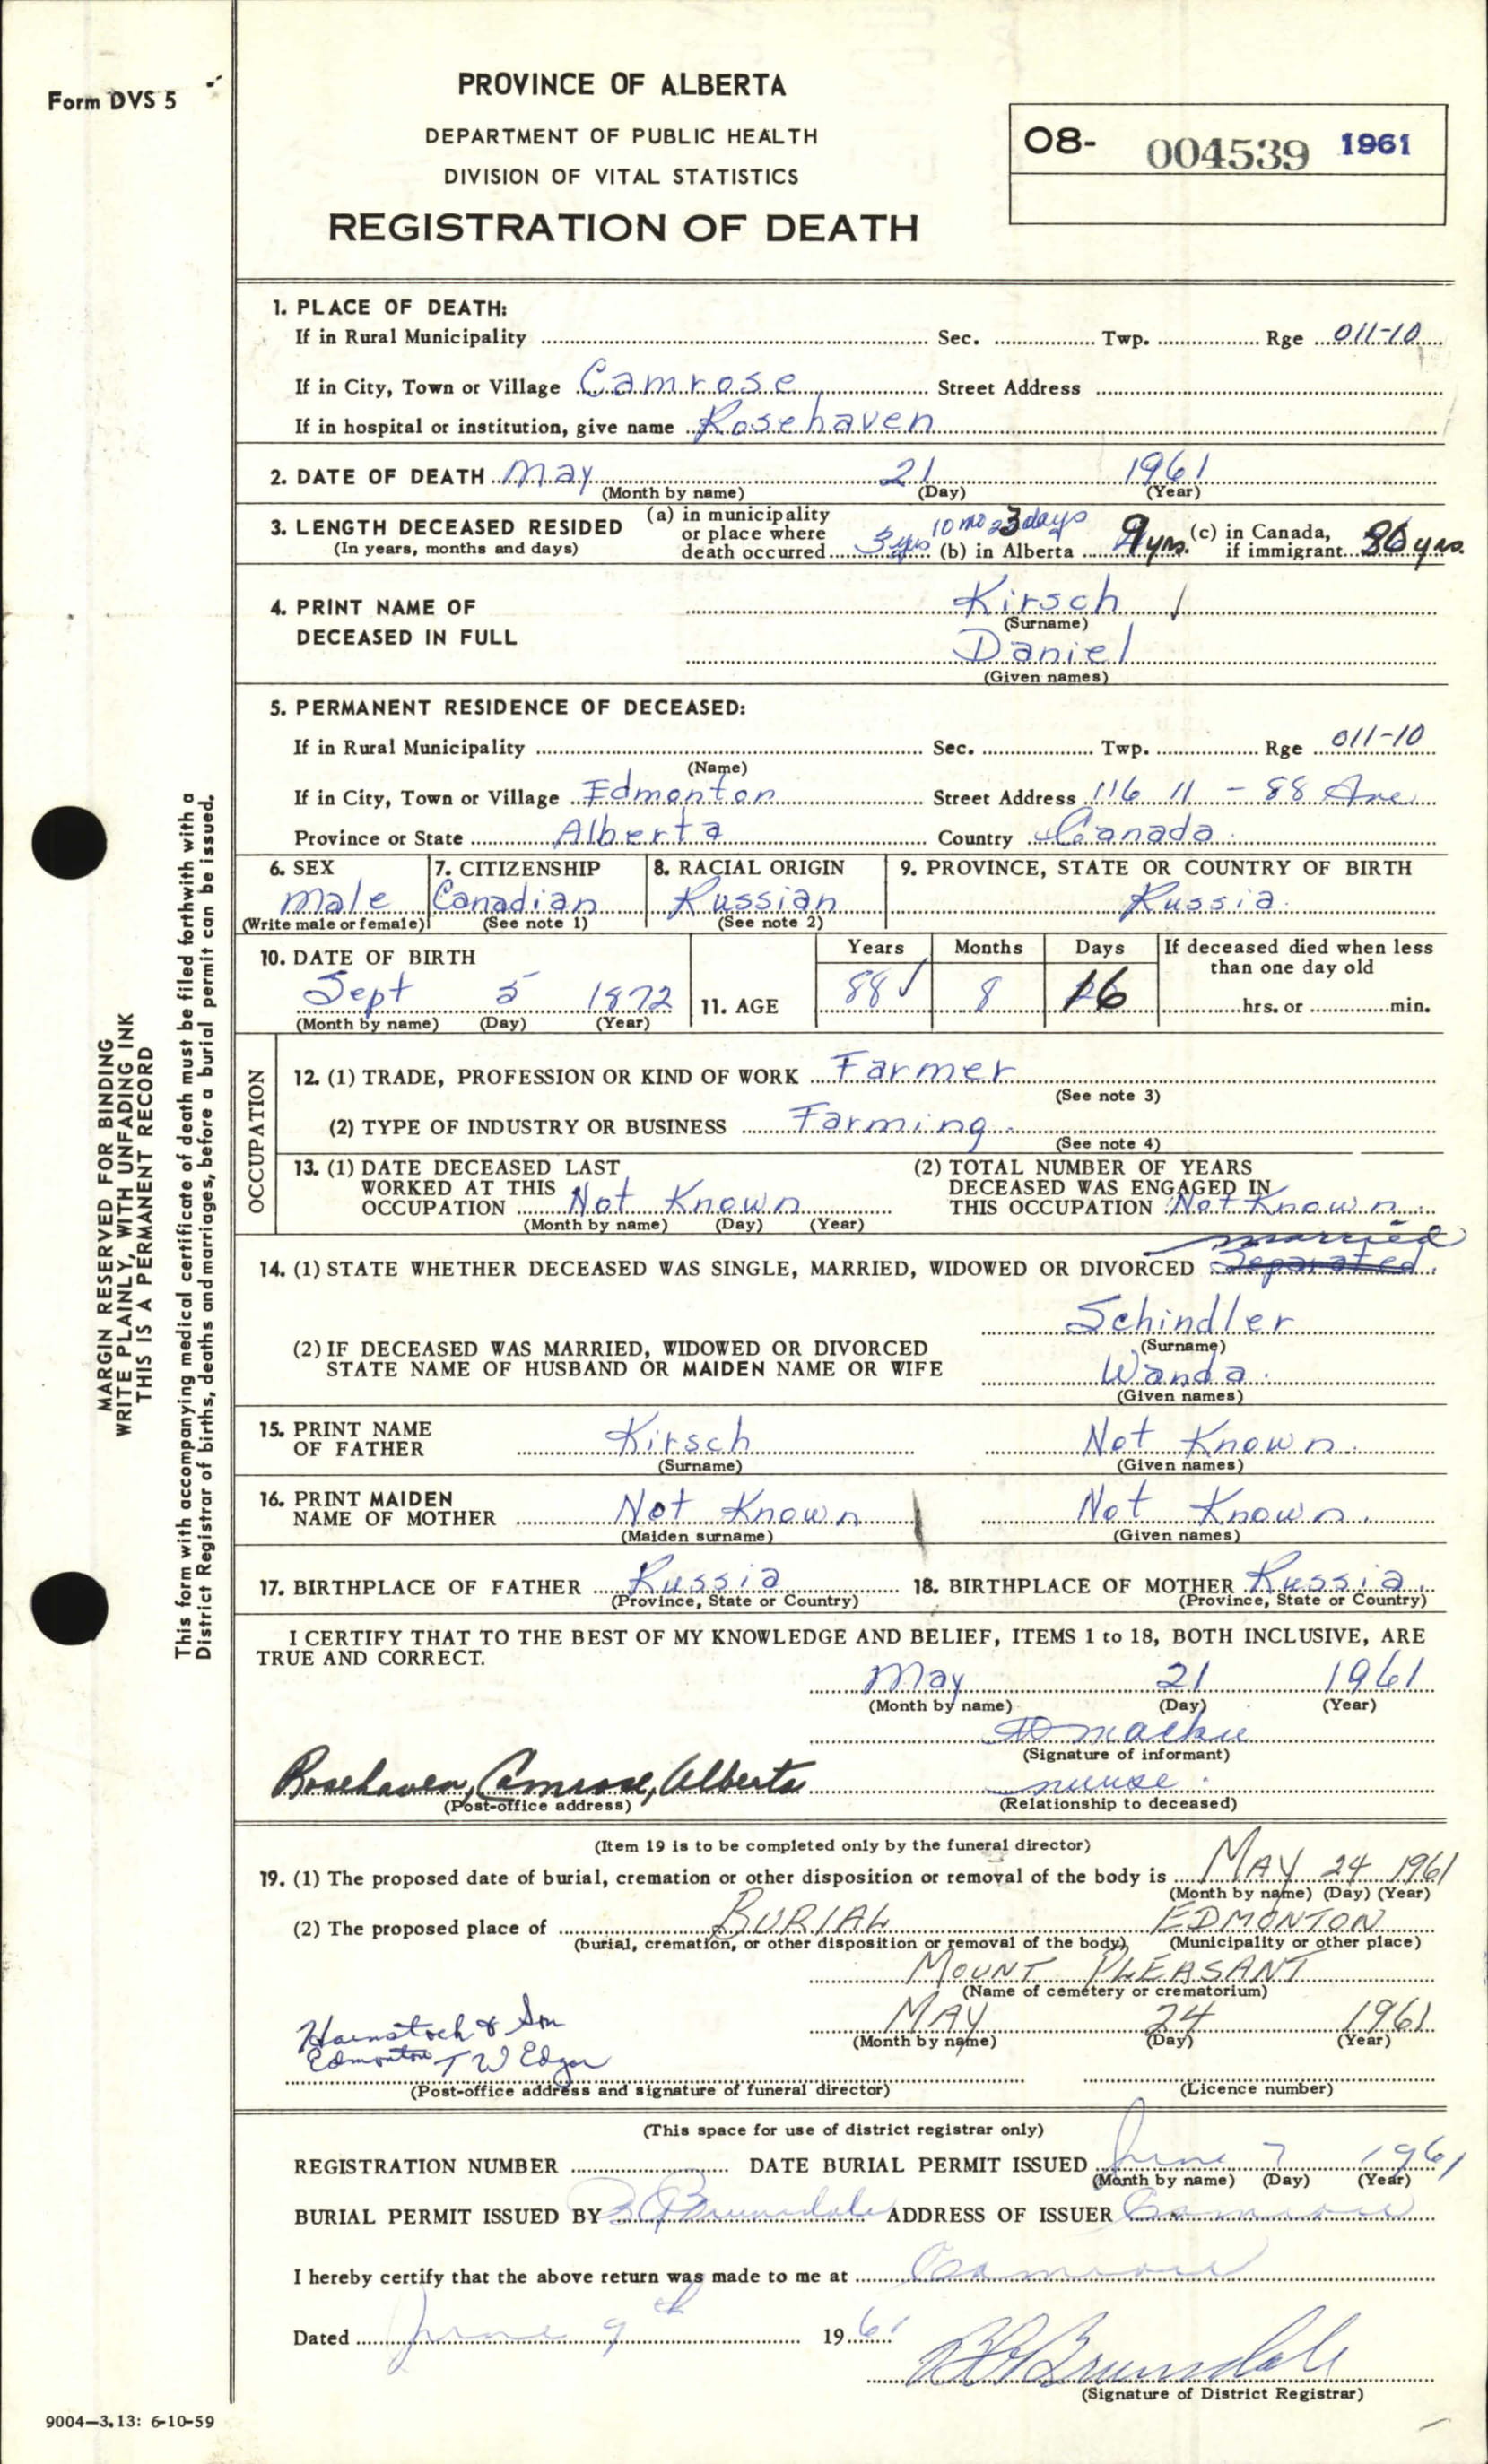 Form DVS 5
PROVINCE OF ALBERTA
DEPARTMENT OF PUBLIC HEALTH
DIVISION OF VITAL STATISTICS
REGISTRATION OF DEATH
08- 004539 1961
1. PLACE OF DEATH:
If in Rural Municipality Sec. Twp. Rge 011-10
If in City, Town or Village Camrose Street Address
If in hospital or institution, give name Rosehaven
2. DATE OF DEATH May 21 1961
(Month by name) (Day) (Year)
3. LENGTH DECEASED RESIDED (In years, months and days)
(a) in municipality or place where death occurred 3 yrs 10 mo 23 days (b) in Alberta 9 yrs. (c) in Canada, if immigrant 36 yrs.
4. PRINT NAME OF DECEASED IN FULL
Kirsch
(Surname)
Daniel
(Given names)
5. PERMANENT RESIDENCE OF DECEASED:
If in Rural Municipality Sec. Twp. Rge 011-10
(Name)
If in City, Town or Village Edmonton Street Address 116 11 - 88 Ave
Province or State Alberta Country Canada
6. SEX 7. CITIZENSHIP 8. RACIAL ORIGIN 9. PROVINCE, STATE OR COUNTRY OF BIRTH
Male Canadian Russian Russia
(Write male or female) (See note 1) (See note 2)
10. DATE OF BIRTH Years Months Days If deceased died when less than one day old
Sept 5 1872 11. AGE 88 8 16 hrs. or min.
(Month by name) (Day) (Year)
OCCUPATION
12. (1) TRADE, PROFESSION OR KIND OF WORK Farmer
(See note 3)
(2) TYPE OF INDUSTRY OR BUSINESS Farming.
(See note 4)
13. (1) DATE DECEASED LAST WORKED AT THIS OCCUPATION Not Known
(Month by name) (Day) (Year)
(2) TOTAL NUMBER OF YEARS DECEASED WAS ENGAGED IN THIS OCCUPATION Not Known.
married
14. (1) STATE WHETHER DECEASED WAS SINGLE, MARRIED, WIDOWED OR DIVORCED Separated.
(2) IF DECEASED WAS MARRIED, WIDOWED OR DIVORCED STATE NAME OF HUSBAND OR MAIDEN NAME OR WIFE
Schindler
(Surname)
Wanda.
(Given names)
15. PRINT NAME OF FATHER Kirsch Not Known.
(Surname) (Given names)
16. PRINT MAIDEN NAME OF MOTHER Not Known Not Known.
(Maiden surname) (Given names)
17. BIRTHPLACE OF FATHER Russia 18. BIRTHPLACE OF MOTHER Russia.
(Province, State or Country) (Province, State or Country)
I CERTIFY THAT TO THE BEST OF MY KNOWLEDGE AND BELIEF, ITEMS 1 to 18, BOTH INCLUSIVE, ARE
TRUE AND CORRECT.
May 21 1961
(Month by name) (Day) (Year)
(Signature of informant)
Rosehaven, Camrose, Alberta nurse.
(Post-office address) (Relationship to deceased)
(Item 19 is to be completed only by the funeral director)
19. (1) The proposed date of burial, cremation or other disposition or removal of the body is MAY 24 1961
(Month by name) (Day) (Year)
(2) The proposed place of BURIAL EDMONTON
(burial, cremation, or other disposition or removal of the body) (Municipality or other place)
MOUNT PLEASANT
(Name of cemetery or crematorium)
MAY 24 1961
(Month by name) (Day) (Year)
Hainstock & Son
Edmonton T W Edgar
(Post-office address and signature of funeral director) (Licence number)
(This space for use of district registrar only)
REGISTRATION NUMBER DATE BURIAL PERMIT ISSUED June 7 1961
(Month by name) (Day) (Year)
BURIAL PERMIT ISSUED BY B Brunsdale ADDRESS OF ISSUER Camrose
I hereby certify that the above return was made to me at Camrose
Dated June 9th 1961
Brunsdale
(Signature of District Registrar)
MARGIN RESERVED FOR BINDING
WRITE PLAINLY, WITH UNFADING INK
THIS IS A PERMANENT RECORD
This form with accompanying medical certificate of death must be filed forthwith with a
District Registrar of births, deaths and marriages, before a burial permit can be issued.
9004—3.13: 6-10-59